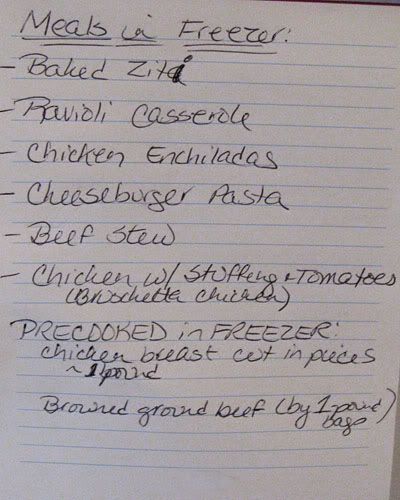 Meals in Freezer:
- Baked Ziti
- Ravioli Casserole
- Chicken Enchiladas
- Cheeseburger Pasta
- Beef Stew
- Chicken w/ Stuffing & Tomatoes
(Bruschetta chicken)
PRECOOKED in FREEZER:
chicken breast cut in pieces
~ 1 pound
Browned ground beef (by 1-pound
bags)